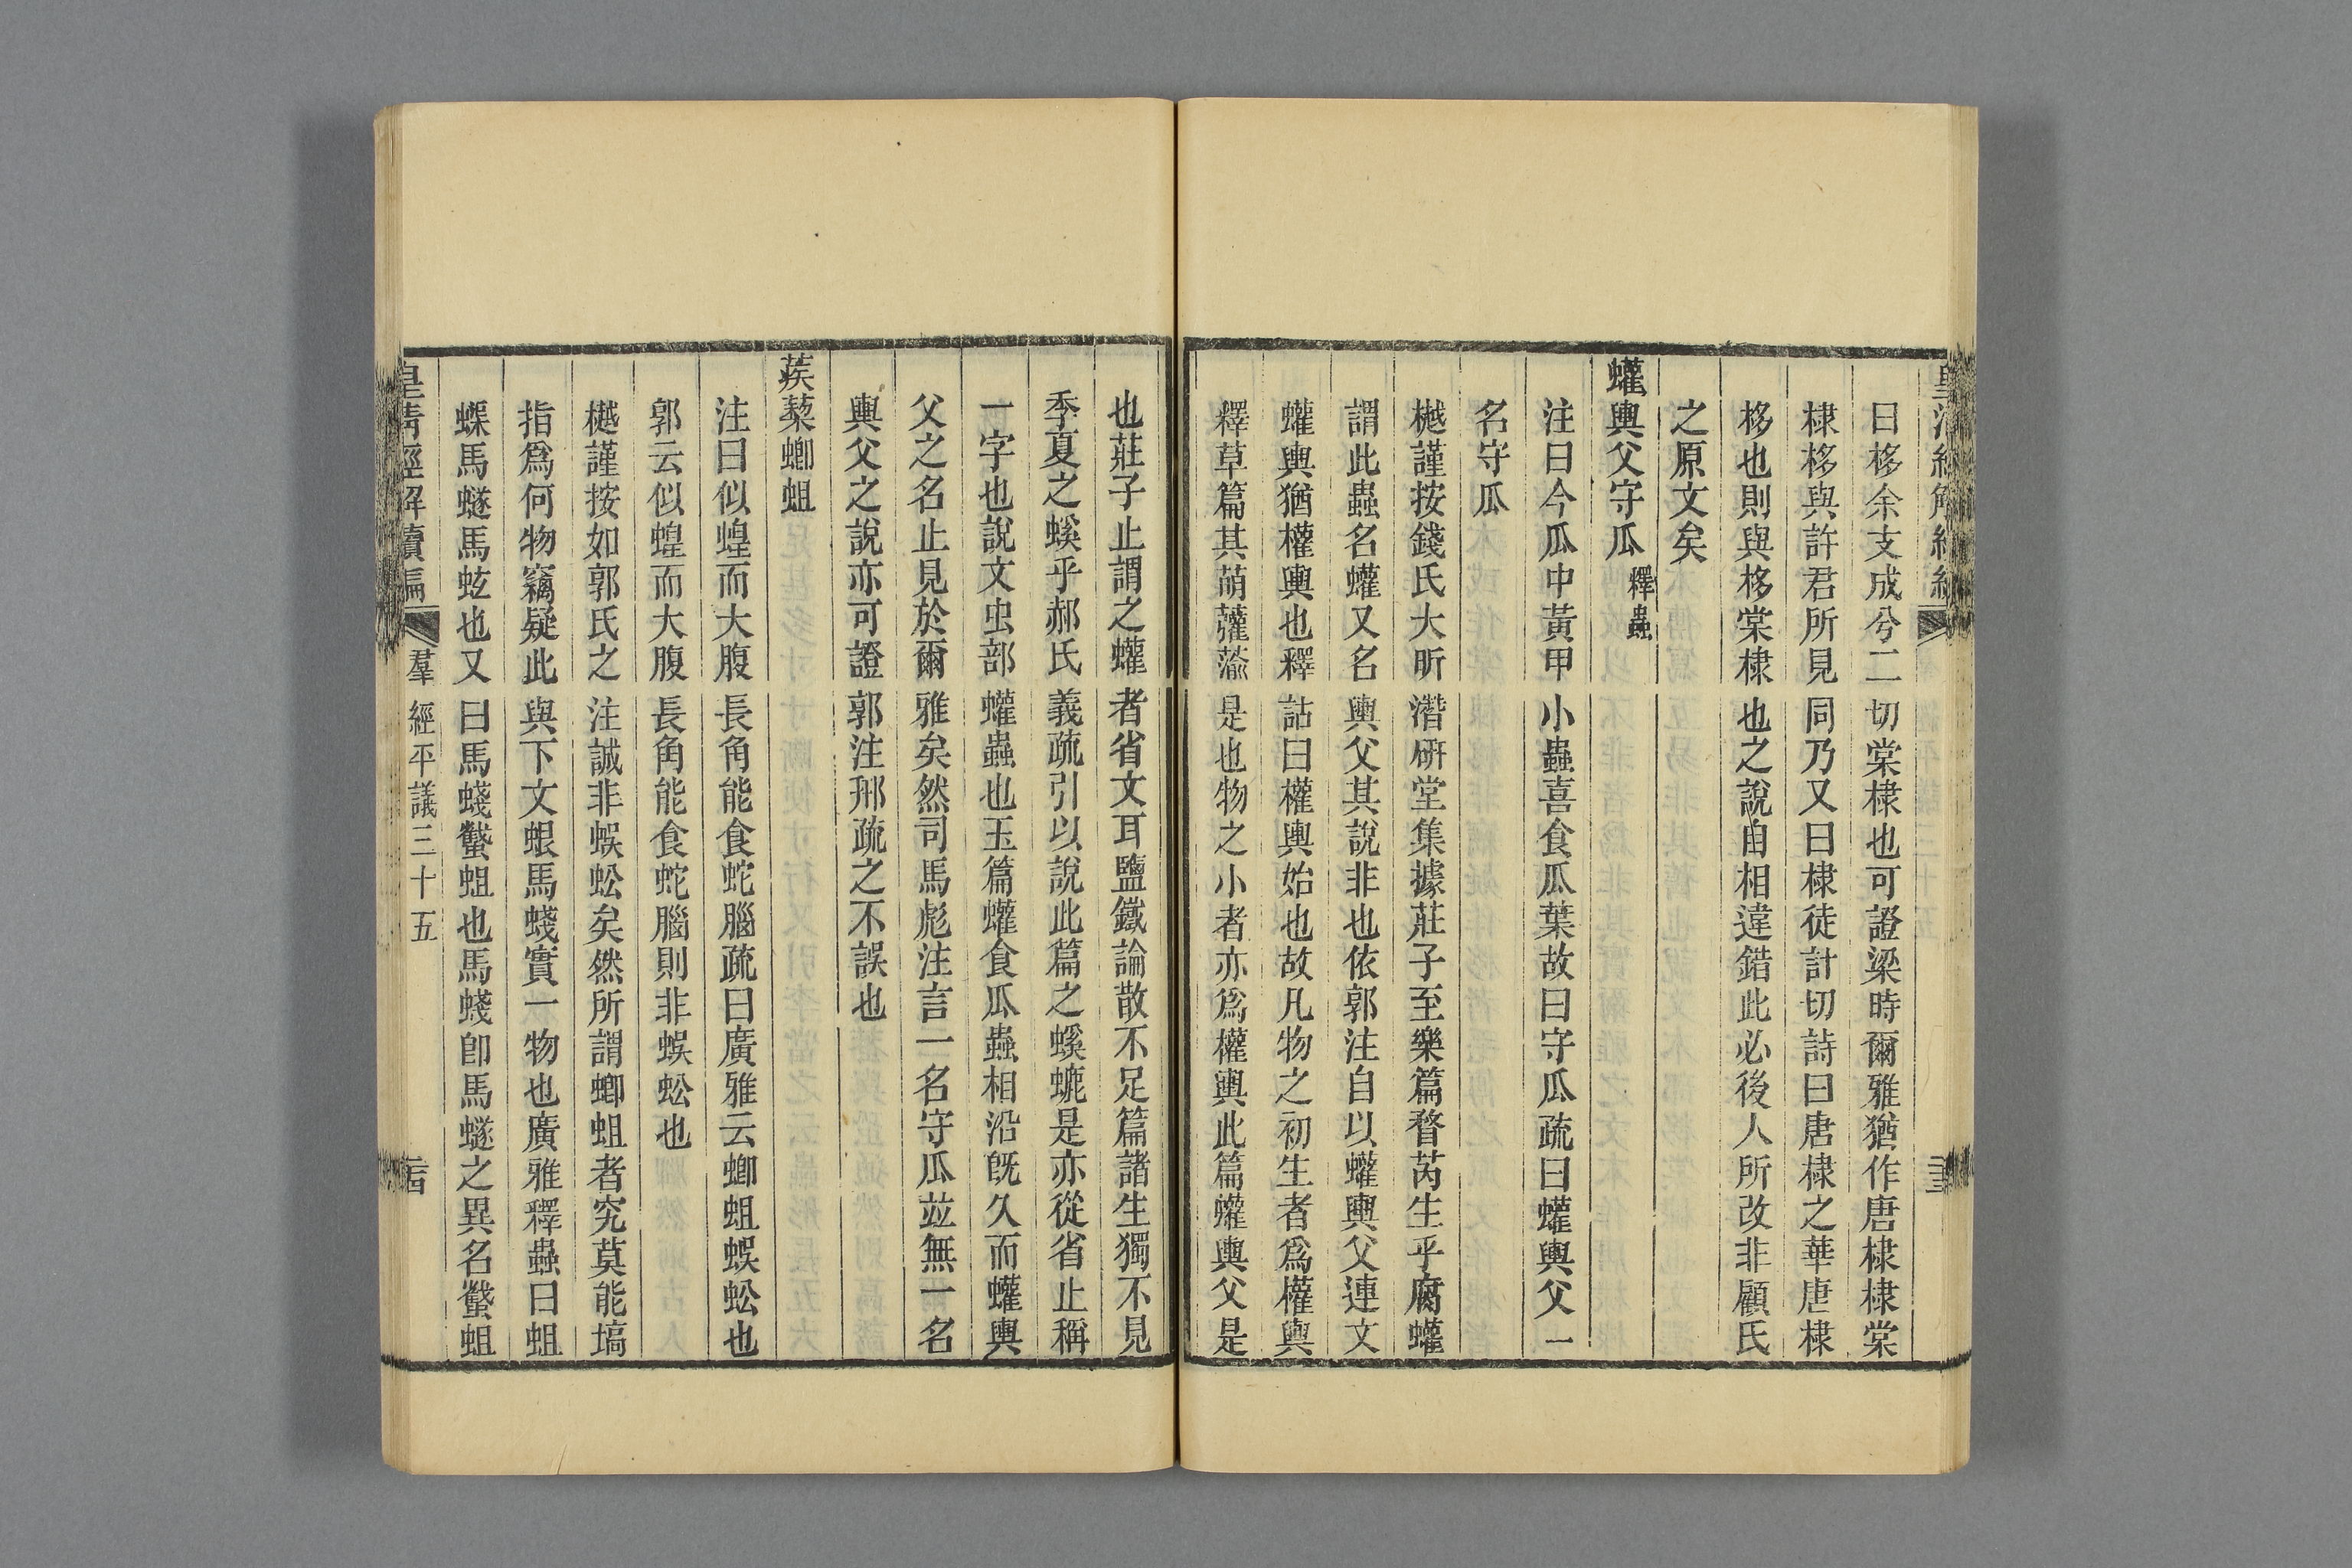 曰栘余支成兮二切棠棣也可證梁時爾雅猶作唐棣棣棠
棣栘與許君所見同乃又曰棣徒計切詩曰唐棣之華唐棣
栘也則與栘棠棣也之說自相違錯此必後人所改非顧氏
之原文矣
蠸輿父守瓜釋蟲
注曰今瓜中黃甲小蟲喜食瓜葉故曰守瓜疏曰蠸輿父一
名守瓜
樾謹按錢氏大昕潛研堂集據莊子至樂篇瞀芮生乎腐蠸
謂此蟲名蠸又名輿父其說非也依郭注自以蠸輿父連文
蠸輿猶權輿也釋詁曰權輿始也故凡物之初生者爲權輿
釋草篇其萌虇蕍是也物之小者亦爲權輿此篇蠸輿父是
也莊子止謂之蠸者省文耳鹽鐵論散不足篇諸生獨不見
季夏之螇乎郝氏義疏引以說此篇之螇螰是亦從省止稱
一字也說文虫部蠸蟲也玉篇蠸食瓜蟲相沿旣久而蠸輿
父之名止見於爾雅矣然司馬彪注言一名守瓜竝無一名
輿父之說亦可證郭注邢疏之不誤也
蒺藜蝍蛆
注曰似蝗而大腹長角能食蛇腦疏曰廣雅云蝍蛆蜈蚣也
郭云似蝗而大腹長角能食蛇腦則非蜈蚣也
樾謹按如郭氏之注誠非蜈蚣矣然所謂蝍蛆者究莫能塙
指爲何物竊疑此與下文蛝馬蝬實一物也廣雅釋蟲曰蛆
蟝馬䗖馬蚿也又曰馬蝬蠽蛆也馬蝬卽馬䗖之異名蠽蛆
羣經平議三十五